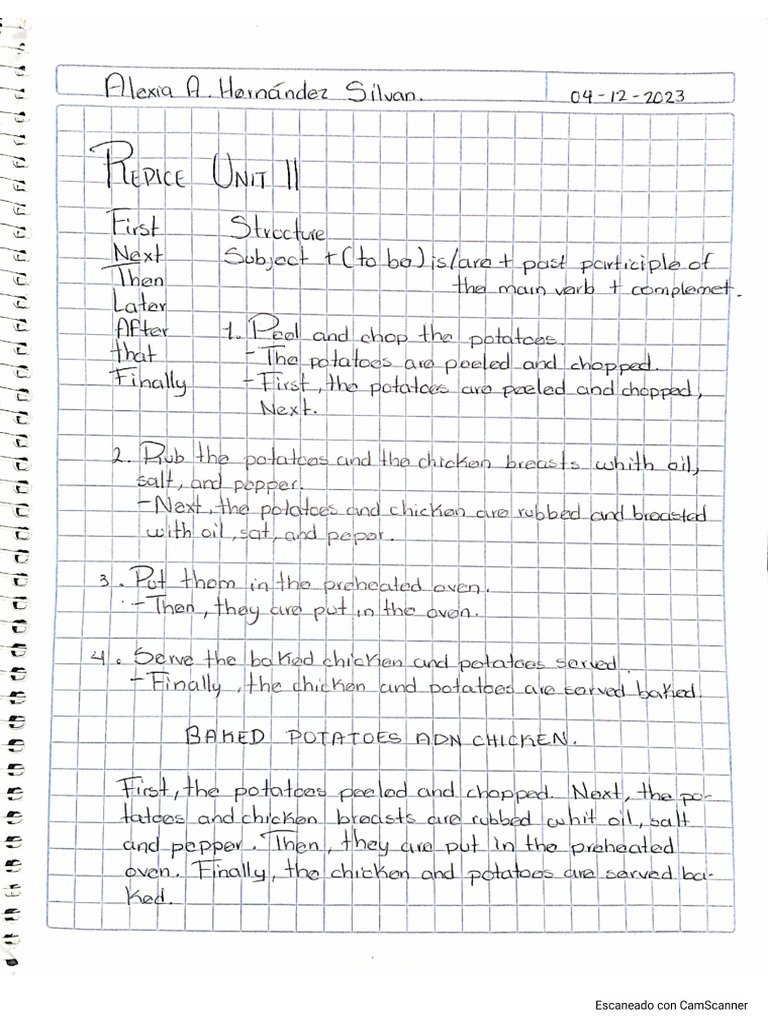 Alexia A. Hernández Silvan. 04-12-2023
REPICE UNIT II
First Structure
Next Subject + (to be) is/are + past participle of
Then the main verb + complemet.
Later
After 1. Peel and chop the potatoes.
that - The potatoes are peeled and chopped.
Finally - First, the potatoes are peeled and chopped,
Next.
2. Rub the potatoes and the chicken breasts whith oil,
salt, and pepper.
- Next, the potatoes and chicken are rubbed and breasted
with oil, sat, and peper.
3. Put them in the preheated oven.
- Then, they are put in the oven.
4. Serve the baked chicken and potatoes served.
- Finally, the chicken and potatoes are served baked.
BAKED POTATOES ADN CHICKEN.
First, the potatoes peeled and chopped. Next, the po-
tatoes and chicken breasts are rubbed whit oil, salt
and pepper. Then, they are put in the preheated
oven. Finally, the chicken and potatoes are served ba-
ked.
Escaneado con CamScanner